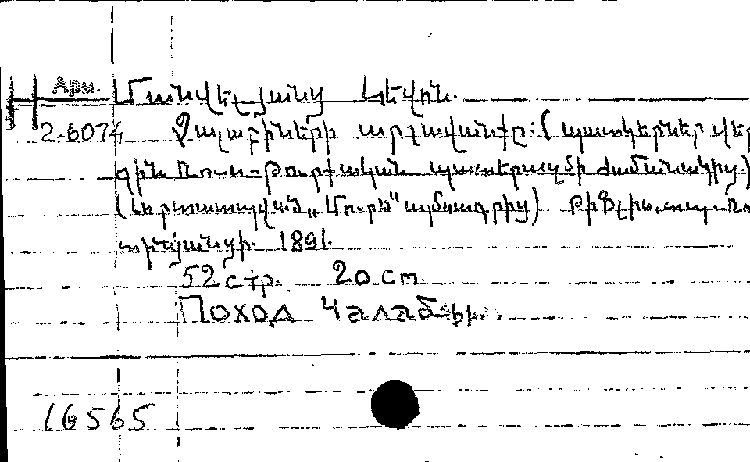 Арм.
Մանվելյանց Լևոն.
2-6074 Չալաբիների արշավանքը: (պատկերներ վեր
ջին Ռուս-Թուրքական պատերազմի ժամանակից)
(Արտատպված „Մուրճ" ամսագրից) Թիֆլիս, տպ.
1891.
52 стр. 20 cm
Поход Чалабян
16565